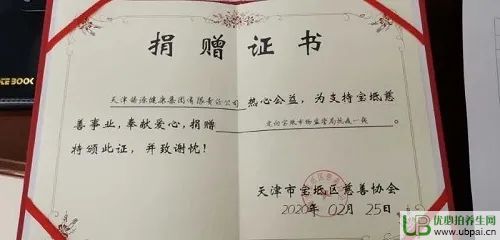 捐赠证书
天津 健康集团有限责任公司 热心公益，为支持宝坻慈
善事业，奉献爱心，捐赠 定向宝坻市场监管局抗疫一线
特颁此证，并致谢忱！
天津市宝坻区慈善协会
2020年02月25日
BOOK
UB 优必拍养生网
www.ubpai.cn